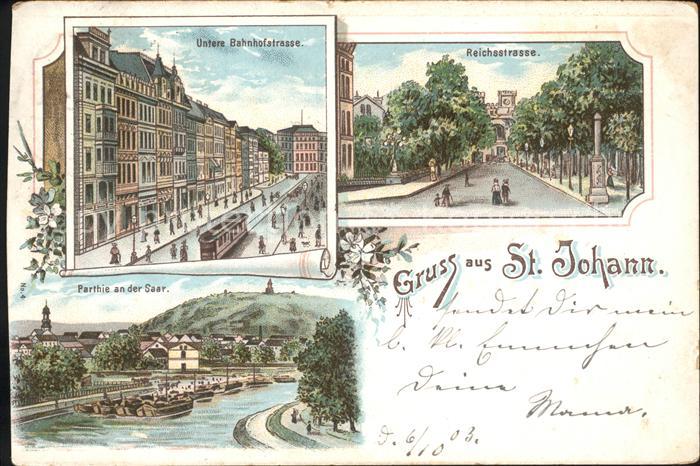 Untere Bahnhofstrasse.
Reichsstrasse.
Gruss aus St. Johann.
Parthie an der Saar.
No. 4
sendet Dir mein
l. Kl. Emmchen
Deine
Mama.
d. 6/10 03.